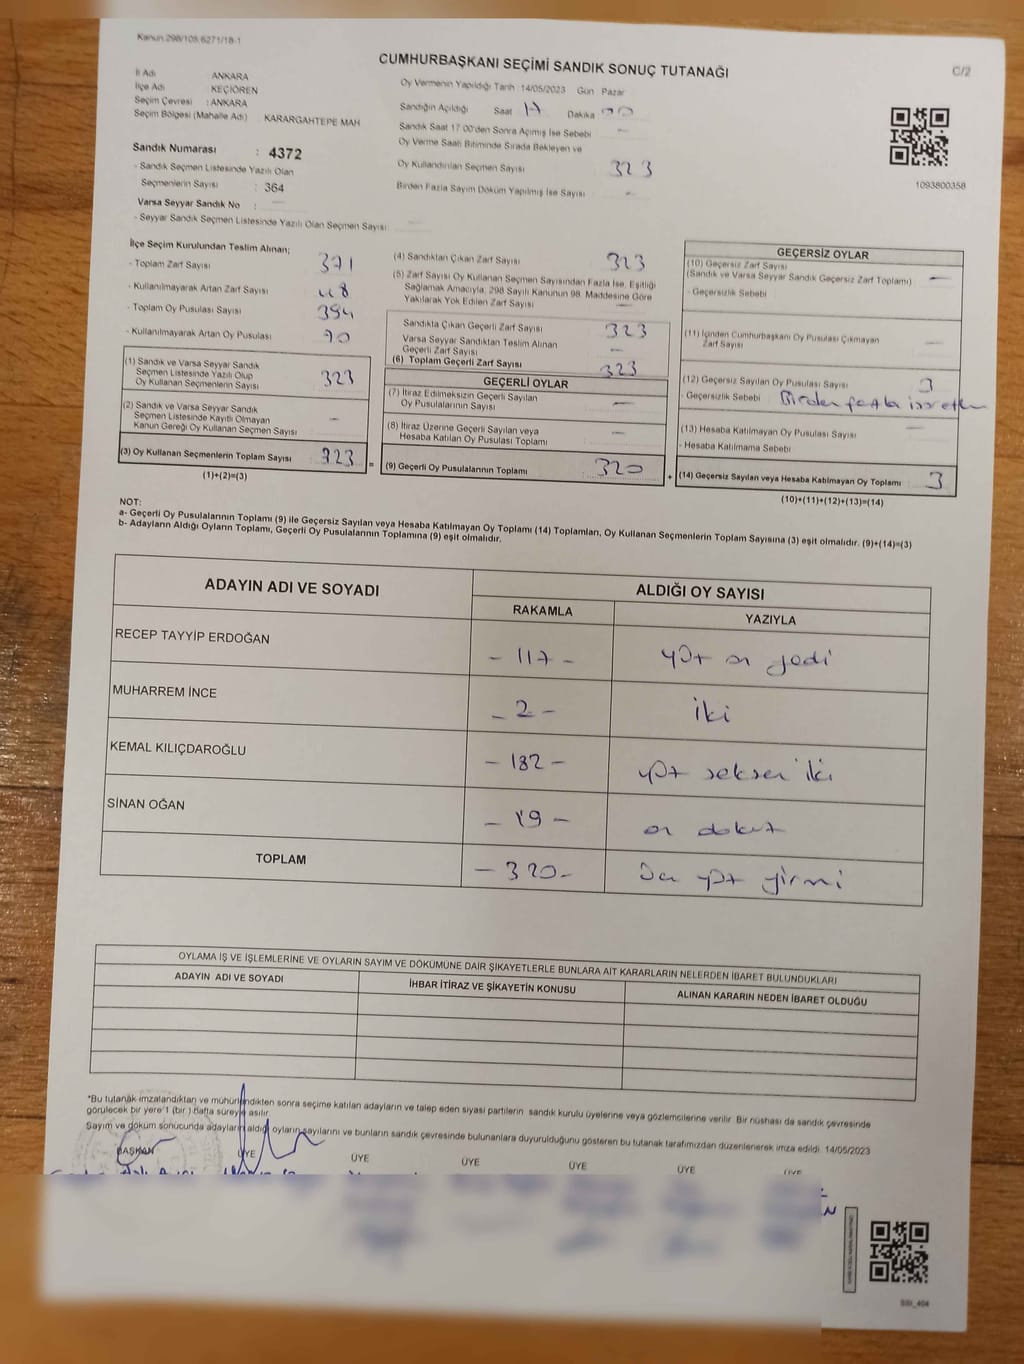 Kanun.298/108,6271/18-1
C/2
CUMHURBAŞKANI SEÇİMİ SANDIK SONUÇ TUTANAĞI
İl Adı ANKARA
İlçe Adı KEÇİÖREN
Seçim Çevresi : ANKARA
Seçim Bölgesi (Mahalle Adı) KARARGAHTEPE MAH
Oy Vermenin Yapıldığı Tarih 14/05/2023 Gün Pazar
Sandığın Açıldığı Saat 17 Dakika 00
Sandık Saat 17:00'den Sonra Açımış İse Sebebi —
Oy Verme Saati Bitiminde Sırada Bekleyen ve
Oy Kullandırılan Seçmen Sayısı 323
Birden Fazla Sayım Döküm Yapılmış İse Sayısı -
1093800358
Sandık Numarası : 4372
- Sandık Seçmen Listesinde Yazılı Olan
Seçmenlerin Sayısı : 364
Varsa Seyyar Sandık No : —
- Seyyar Sandık Seçmen Listesinde Yazılı Olan Seçmen Sayısı —
İlçe Seçim Kurulundan Teslim Alınan;
- Toplam Zarf Sayısı 371
- Kullanılmayarak Artan Zarf Sayısı 48
- Toplam Oy Pusulası Sayısı 394
- Kullanılmayarak Artan Oy Pusulası 70
(1) Sandık ve Varsa Seyyar Sandık
Seçmen Listesinde Yazılı Olup
Oy Kullanan Seçmenlerin Sayısı 323
(2) Sandık ve Varsa Seyyar Sandık
Seçmen Listesinde Kayıtlı Olmayan
Kanun Gereği Oy Kullanan Seçmen Sayısı —
(3) Oy Kullanan Seçmenlerin Toplam Sayısı 323
(1)+(2)=(3)
(4) Sandıktan Çıkan Zarf Sayısı 323
(5) Zarf Sayısı Oy Kullanan Seçmen Sayısından Fazla İse, Eşitliği
Sağlamak Amacıyla, 298 Sayılı Kanunun 98. Maddesine Göre
Yakılarak Yok Edilen Zarf Sayısı —
Sandıkta Çıkan Geçerli Zarf Sayısı 323
Varsa Seyyar Sandıktan Teslim Alınan
Geçerli Zarf Sayısı —
(6) Toplam Geçerli Zarf Sayısı 323
GEÇERLİ OYLAR
(7) İtiraz Edilmeksizin Geçerli Sayılan
Oy Pusulalarının Sayısı —
(8) İtiraz Üzerine Geçerli Sayılan veya
Hesaba Katılan Oy Pusulası Toplamı —
= (9) Geçerli Oy Pusulalarının Toplamı 320
GEÇERSİZ OYLAR
(10) Geçersiz Zarf Sayısı
(Sandık ve Varsa Seyyar Sandık Geçersiz Zarf Toplamı) —
- Geçersizlik Sebebi
(11) İçinden Cumhurbaşkanı Oy Pusulası Çıkmayan
Zarf Sayısı —
(12) Geçersiz Sayılan Oy Pusulası Sayısı 3
- Geçersizlik Sebebi Birden fazla işaretli
(13) Hesaba Katılmayan Oy Pusulası Sayısı —
- Hesaba Katılmama Sebebi
+ (14) Geçersiz Sayılan veya Hesaba Katılmayan Oy Toplamı 3
(10)+(11)+(12)+(13)=(14)
NOT:
a- Geçerli Oy Pusulalarının Toplamı (9) ile Geçersiz Sayılan veya Hesaba Katılmayan Oy Toplamı (14) Toplamları, Oy Kullanan Seçmenlerin Toplam Sayısına (3) eşit olmalıdır. (9)+(14)=(3)
b- Adayların Aldığı Oyların Toplamı, Geçerli Oy Pusulalarının Toplamına (9) eşit olmalıdır.
ADAYIN ADI VE SOYADI ALDIĞI OY SAYISI
RAKAMLA YAZIYLA
RECEP TAYYİP ERDOĞAN - 117 - yüz on yedi
MUHARREM İNCE - 2 - iki
KEMAL KILIÇDAROĞLU - 182 - yüz seksen iki
SİNAN OĞAN - 19 - on dokuz
TOPLAM - 320 - üç yüz yirmi
OYLAMA İŞ VE İŞLEMLERİNE VE OYLARIN SAYIM VE DÖKÜMÜNE DAİR ŞİKAYETLERLE BUNLARA AİT KARARLARIN NELERDEN İBARET BULUNDUKLARI
ADAYIN ADI VE SOYADI İHBAR İTİRAZ VE ŞİKAYETİN KONUSU ALINAN KARARIN NEDEN İBARET OLDUĞU
*Bu tutanak imzalandıktan ve mühürlendikten sonra seçime katılan adayların ve talep eden siyasi partilerin sandık kurulu üyelerine veya gözlemcilerine verilir. Bir nüshası da sandık çevresinde
görülecek bir yere 1 (bir ) hafta süreyle asılır.
Sayım ve döküm sonucunda adayların aldığı oyların sayılarını ve bunların sandık çevresinde bulunanlara duyurulduğunu gösteren bu tutanak tarafımızdan düzenlenerek imza edildi. 14/05/2023
BAŞKAN ÜYE ÜYE ÜYE ÜYE ÜYE ÜYE